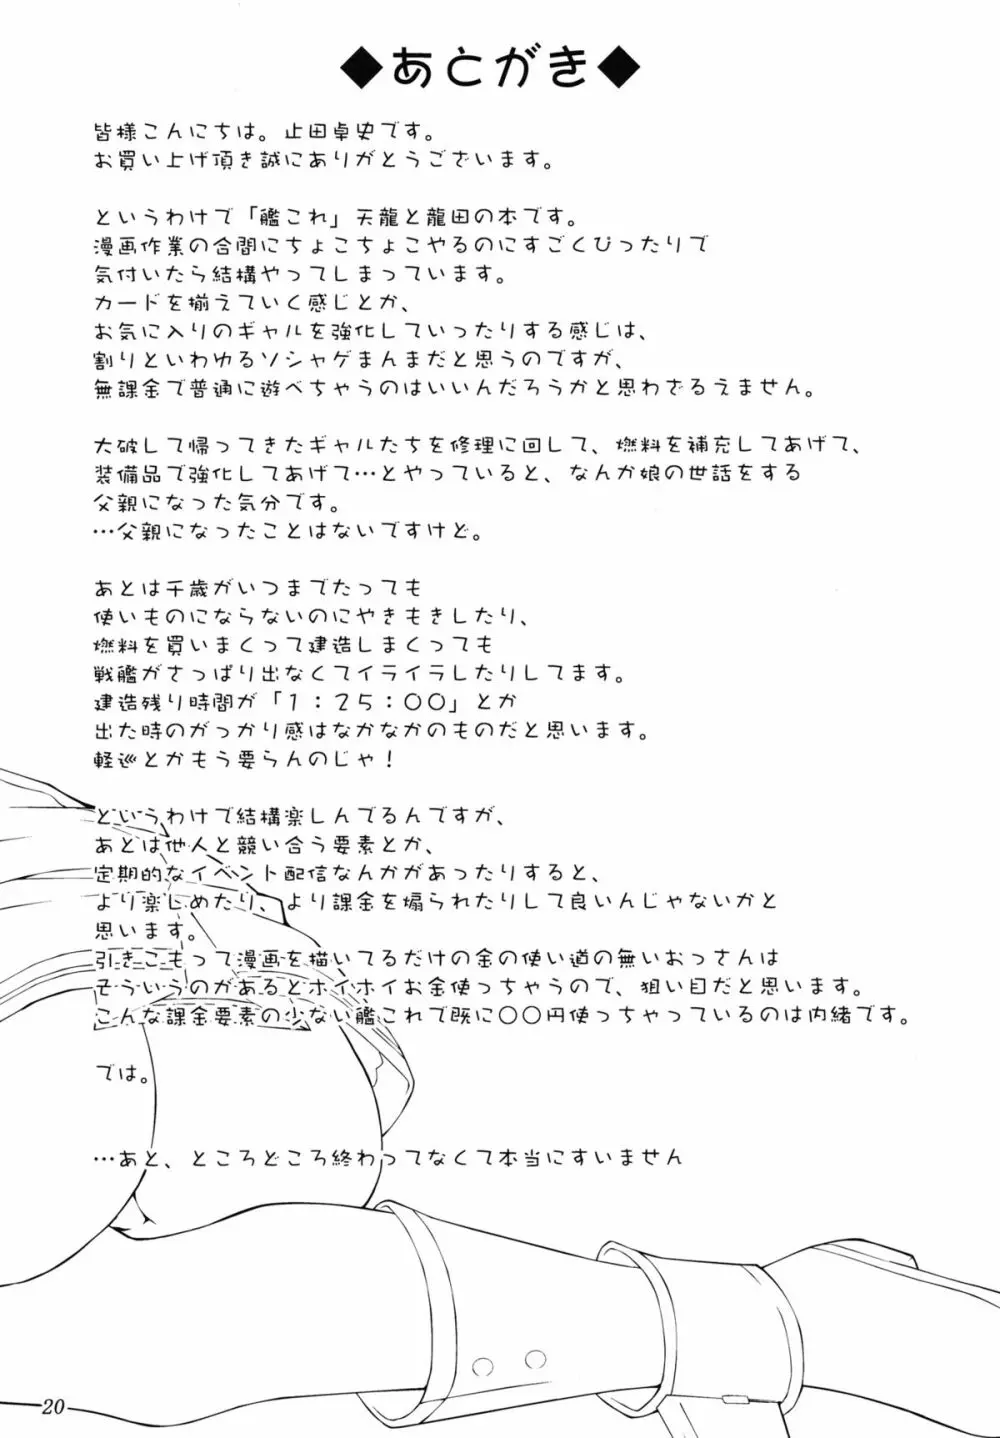 ◆あとがき◆
皆様こんにちは。止田卓史です。
お買い上げ頂き誠にありがとうございます。
というわけで「艦これ」天龍と龍田の本です。
漫画作業の合間にちょこちょこやるのにすごくぴったりで
気付いたら結構やってしまっています。
カードを揃えていく感じとか、
お気に入りのギャルを強化していったりする感じは、
割りといわゆるソシャゲまんまだと思うのですが、
無課金で普通に遊べちゃうのはいいんだろうかと思わざるえません。
大破して帰ってきたギャルたちを修理に回して、燃料を補充してあげて、
装備品で強化してあげて…とやっていると、なんか娘の世話をする
父親になった気分です。
…父親になったことはないですけど。
あとは千歳がいつまでたっても
使いものにならないのにやきもきしたり、
燃料を買いまくって建造しまくっても
戦艦がさっぱり出なくてイライラしたりしてます。
建造残り時間が「1:25:00」とか
出た時のがっかり感はなかなかのものだと思います。
軽巡とかもう要らんのじゃ!
というわけで結構楽しんでるんですが、
あとは他人と競い合う要素とか、
定期的なイベント配信なんかがあったりすると、
より楽しめたり、より課金を煽られたりして良いんじゃないかと
思います。
引きこもって漫画を描いてるだけの金の使い道の無いおっさんは
そういうのがあるとホイホイお金使っちゃうので、狙い目だと思います。
こんな課金要素の少ない艦これで既に〇〇円使っちゃっているのは内緒です。
では。
…あと、ところどころ終わってなくて本当にすいません
20